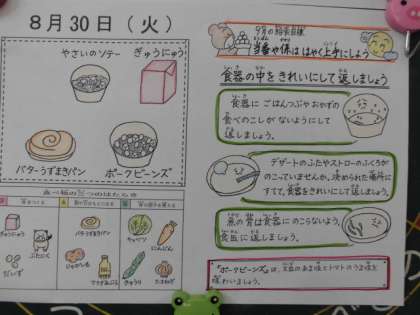 8月30日（火）
やさいのソテー
ぎゅうにゅう
バターうずまきパン
ポークビーンズ
ぎゅうにゅう
ぶたにく
だいず
バターうずまきパン
じゃがいも
マヨネーズ
キャベツ
にんじん
きゅうり
たまねぎ
9月の給食目標
当番や係ははやく上手にしよう
食器の中をきれいにして返しましょう
食器にごはんつぶやおかずの
食べのこしがないようにして
返しましょう。
デザートのふたやストローのふくろが
のこっていませんか。決められた場所に
すてて、食器をきれいにして返しましょう。
魚の骨は食器にのこらないよう、
食缶に返しましょう。
「ポークビーンズ」は、大豆のあま味とトマトのうま味を
味わいましょう。